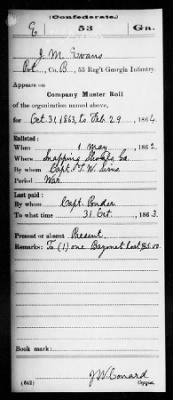 (Confederate.)
E 53 Ga.
J. M. Evans
Pvt., Co. B, 53 Reg't Georgia Infantry.
Appears on
Company Muster Roll
of the organization named above,
for Oct. 31, 1863, to Feb. 29, 1864.
Enlisted:
When 1 May, 1862.
Where Snapping Shoals Ga.
By whom Capt. T. W. Sims
Period War
Last paid:
By whom Capt. Ponder
To what time 31 Oct., 1863.
Present or absent Present
Remarks: To (1) one Bayonet lost
Book mark:
(642) J W Conard
Copyist.